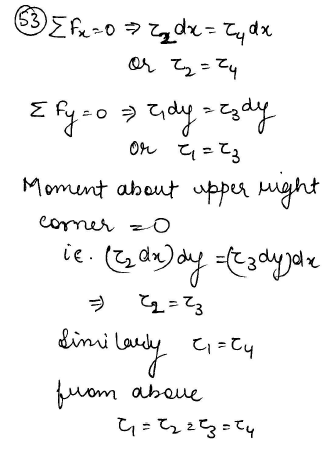 53 Σ Fx = 0 ⇒ τ₂dx = τ₄dx
or τ₂ = τ₄
Σ Fy = 0 ⇒ τ₁dy = τ₃dy
or τ₁ = τ₃
Moment about upper right
corner = 0
ie. (τ₂ dx) dy = (τ₃ dy) dx
⇒ τ₂ = τ₃
Similarly τ₁ = τ₄
from above
τ₁ = τ₂ = τ₃ = τ₄